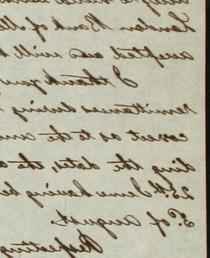 London Bank of
accepted and will b
I thank you
remittances during
correct as to the am
ding the dates, the
25th June having be
of August.
Respecting